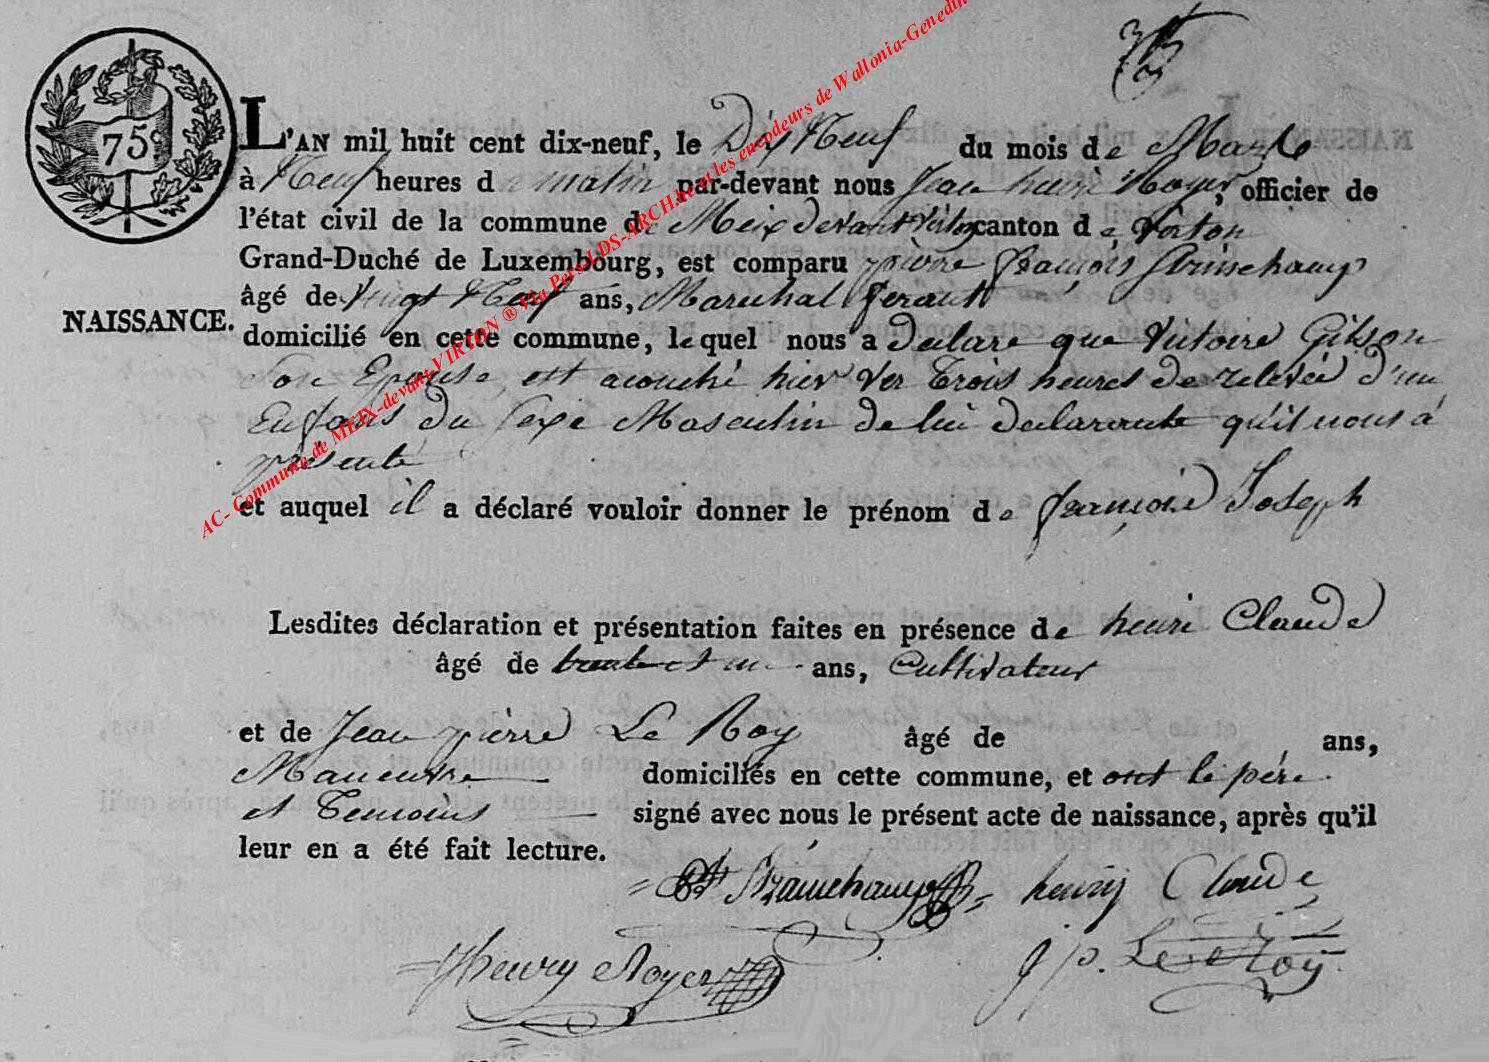 75 c.
L'AN mil huit cent dix-neuf, le Dix Neuf du mois de Mars
à Neuf heures du matin par-devant nous Jean henri Noyer, officier de
l'état civil de la commune de Meix devant Virton canton de Virton
Grand-Duché de Luxembourg, est comparu pierre françois
âgé de vingt Neuf ans, Marechal ferant
NAISSANCE.
domicilié en cette commune, lequel nous a declare que Victoire Gilson
Son Epouse, est acouché hier ver Trois heures de relevée d'un
Enfans du Sexe Masculin de lui declarante qu'il nous a
présenté
et auquel il a déclaré vouloir donner le prénom de françois Joseph
Lesdites déclaration et présentation faites en présence de henri Claude
âgé de trente et un ans, Cultivateur
et de Jean pierre Le Roy âgé de ans,
Maneuvre domiciliés en cette commune, et ont le pére
et Temoins signé avec nous le présent acte de naissance, après qu'il
leur en a été fait lecture.
henrij Claude
JHenry Noyer J p. Le Roy
AC- Commune de MEIX-devant-VIRTON ® Via Pers-LDS-ARCH.be et les encodeurs de Wallonia-Genedin